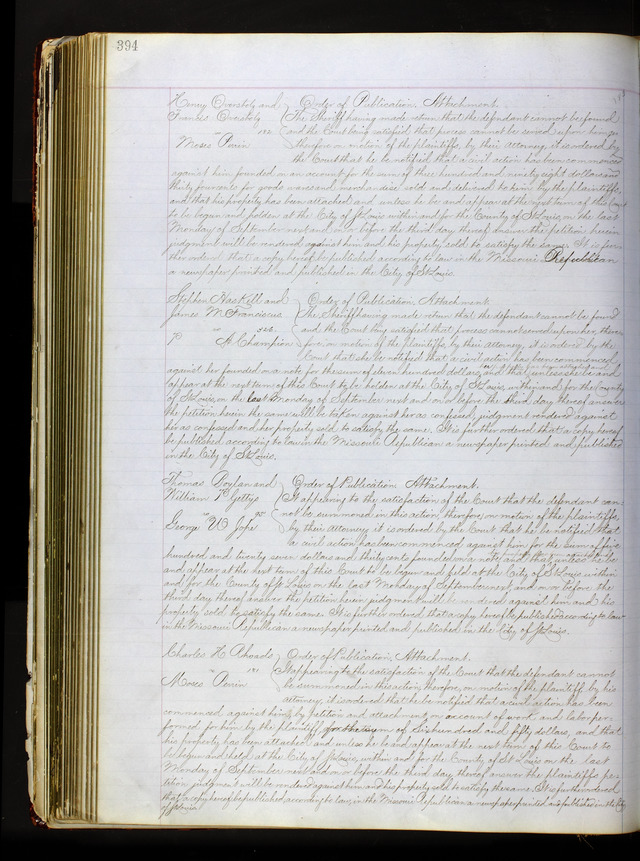 394
Henry Overstolz and } Order of Publication. Attachment.
Francis Overstolz } The Sheriff having made return that the defendant cannot be found
and the Court being satisfied that process cannot be served upon him
Moses Perrin } therefore on motion of the plaintiffs, by their attorney, it is ordered by
the Court that he be notified that a civil action has been commenced
against him, founded on an account for the sum of three hundred and ninety eight dollars and
thirty four cents for goods wares and merchandise sold and delivered to him by the plaintiffs,
and that his property has been attached and unless he be and appear at the next term of this Court
to be begun and holden at the City of St Louis within and for the County of St Louis, on the last
Monday of September next and on or before the third day thereof answer the petition herein
judgment will be rendered against him and his property sold to satisfy the same. It is fur-
ther ordered that a copy hereof be published according to law in the Missouri Republican
a newspaper printed and published in the City of St Louis.
Stephen Haskell and } Order of Publication. Attachment.
James M. Franciscus } The Sheriff having made return that the defendant cannot be found
and the Court being satisfied that process cannot be served upon her, there-
A. Champion } fore, on motion of the Plaintiffs, by their attorney, it is ordered by the
Court that she be notified that a civil action has been commenced
against her founded on a note for the sum of eleven hundred dollars, and that unless she be and
appear at the next term of this Court to be holden at the City of St Louis, within and for the County
of St Louis, on the last Monday of September next and on or before the third day thereof answer
the petition herein the same will be taken against her as confessed, judgment rendered against
her as confessed and her property sold to satisfy the same. It is further ordered that a copy hereof
be published according to law in the Missouri Republican a newspaper printed and published
in the City of St Louis.
Thomas and } Order of Publication. Attachment.
William Gettys } It appearing to the satisfaction of the Court that the defendant can-
not be summoned in this action, therefore, on motion of the plaintiffs,
George W } by their attorney, it is ordered by the Court that he be notified that
a civil action has been commenced against him for the sum of five
hundred and twenty seven dollars and thirty cents founded on a note, and that unless he be
and appear at the next term of this Court to be begun and held at the City of St Louis within
and for the County of St Louis on the last Monday of September next and on or before the
third day thereof answer the petition herein judgment will be rendered against him and his
property sold to satisfy the same. It is further ordered that a copy hereof be published according to law
in the Missouri Republican a newspaper printed and published in the City of St Louis.
Charles H. Rhoads } Order of Publication. Attachment.
It appearing to the satisfaction of the Court that the defendant cannot
Moses Perrin } be summoned in this action, therefore, on motion of the plaintiff, by his
attorney, it is ordered that he be notified that a civil action has been
commenced against him by petition and attachment on account of work and labor per-
formed for him by the plaintiff, for the sum of Six hundred and fifty dollars, and that
his property has been attached and unless he be and appear at the next term of this Court to
be begun and held at the City of St Louis, within and for the County of St Louis on the last
Monday of September next and on or before the third day thereof answer the plaintiffs pe-
tition, judgment will be rendered against him and his property sold to satisfy the same. It is further ordered
that a copy hereof be published according to law, in the Missouri Republican a newspaper printed and published in the City